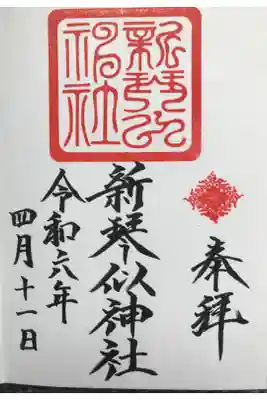 奉拝
新琴似神社
令和六年
四月十一日
新琴似
神社